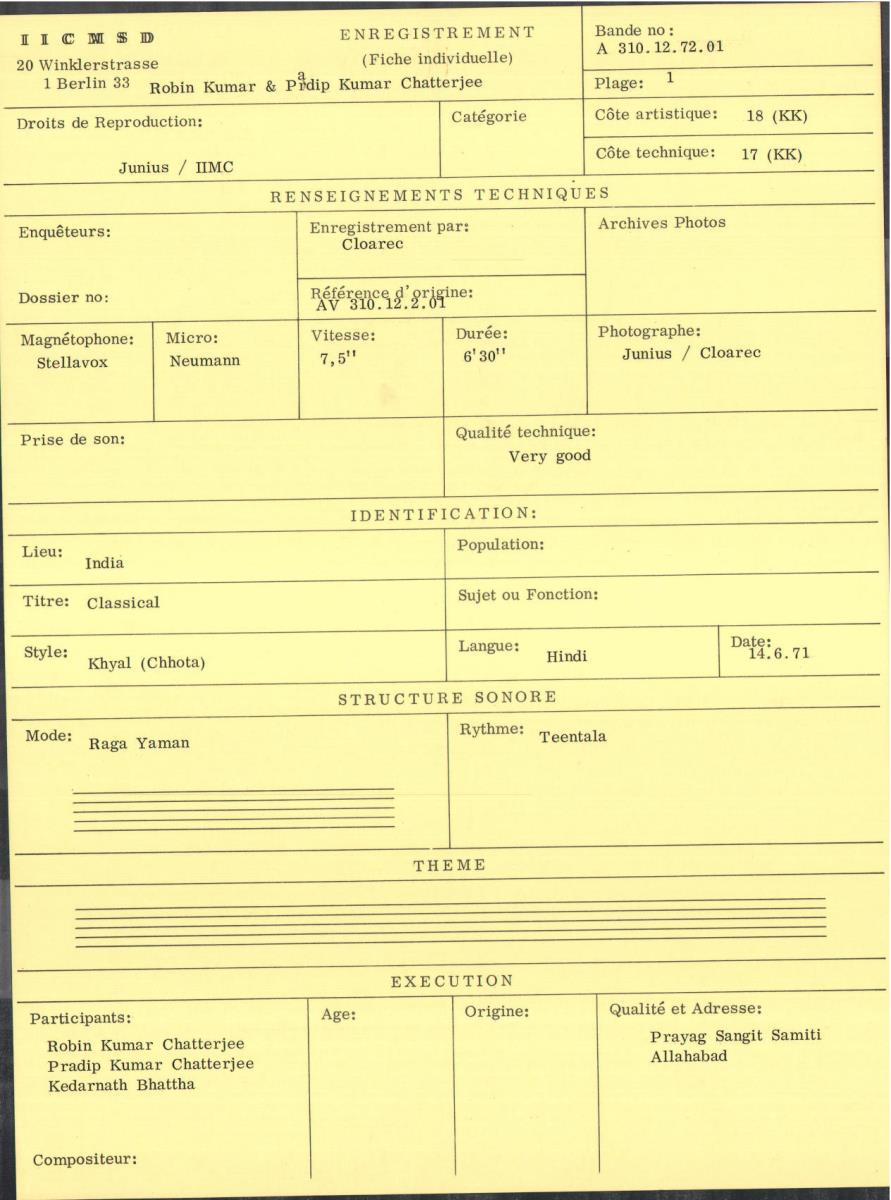 IICMSD
ENREGISTREMENT
(Fiche individuelle)
20 Winklerstrasse
1 Berlin 33
Robin Kumar & Pradip Kumar Chatterjee
Bande no:
A 310.12.72.01
Plage: 1
Droits de Reproduction:
Junius / IIMC
Catégorie
Côte artistique: 18 (KK)
Côte technique: 17 (KK)
RENSEIGNEMENTS TECHNIQUES
Enquêteurs:
Enregistrement par:
Cloarec
Archives Photos
Dossier no:
Référence d'origine:
AV 310.12.2.01
Magnétophone:
Stellavox
Micro:
Neumann
Vitesse:
7,5''
Durée:
6'30''
Photographe:
Junius / Cloarec
Prise de son:
Qualité technique:
Very good
IDENTIFICATION:
Lieu: India
Population:
Titre: Classical
Sujet ou Fonction:
Style: Khyal (Chhota)
Langue: Hindi
Date:
14.6.71
STRUCTURE SONORE
Mode: Raga Yaman
Rythme: Teentala
THEME
EXECUTION
Participants:
Robin Kumar Chatterjee
Pradip Kumar Chatterjee
Kedarnath Bhattha
Age:
Origine:
Qualité et Adresse:
Prayag Sangit Samiti
Allahabad
Compositeur: